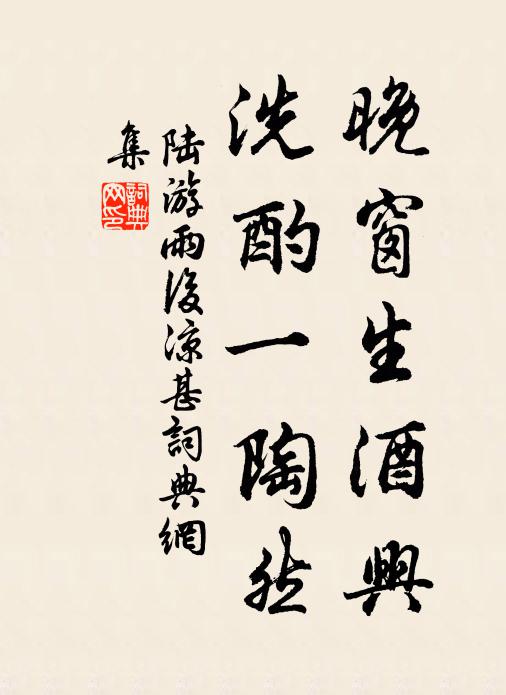 晚窗生酒興
洗酌一陶然
陸游雨後涼甚詞典網
集
詞典網印